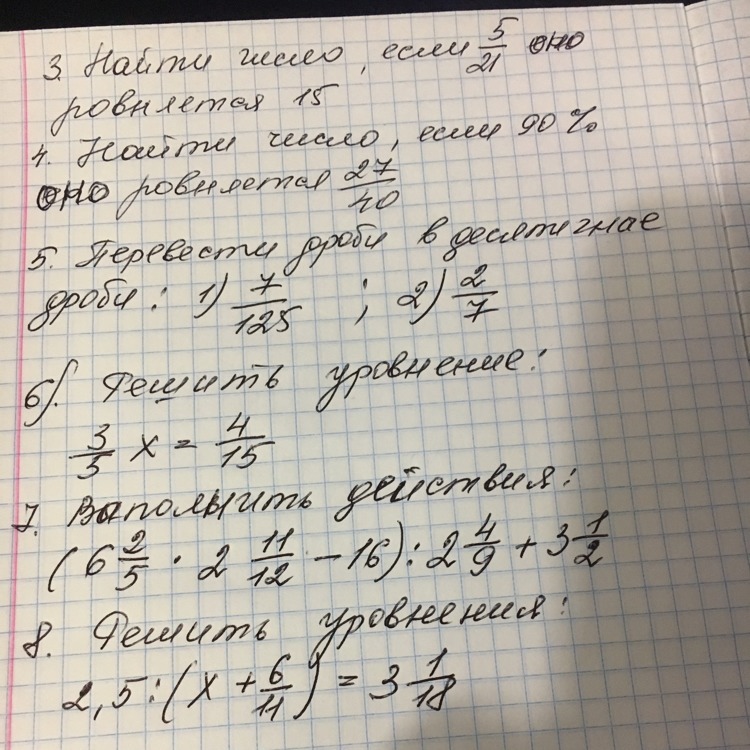 3. Найти число, если 5/21 оно
ровняется 15
4. Найти число, если 90%
оно ровняется 27/40
5. Перевести дроби в десятичнае
дроби: 1) 7/125 ; 2) 2/7
6). Решить уровнение:
3/5 x = 4/15
7. Выполнить действия:
(6 2/5 · 2 11/12 - 16) : 2 4/9 + 3 1/2
8. Решить уровнения:
2,5 : (x + 6/11) = 3 1/18